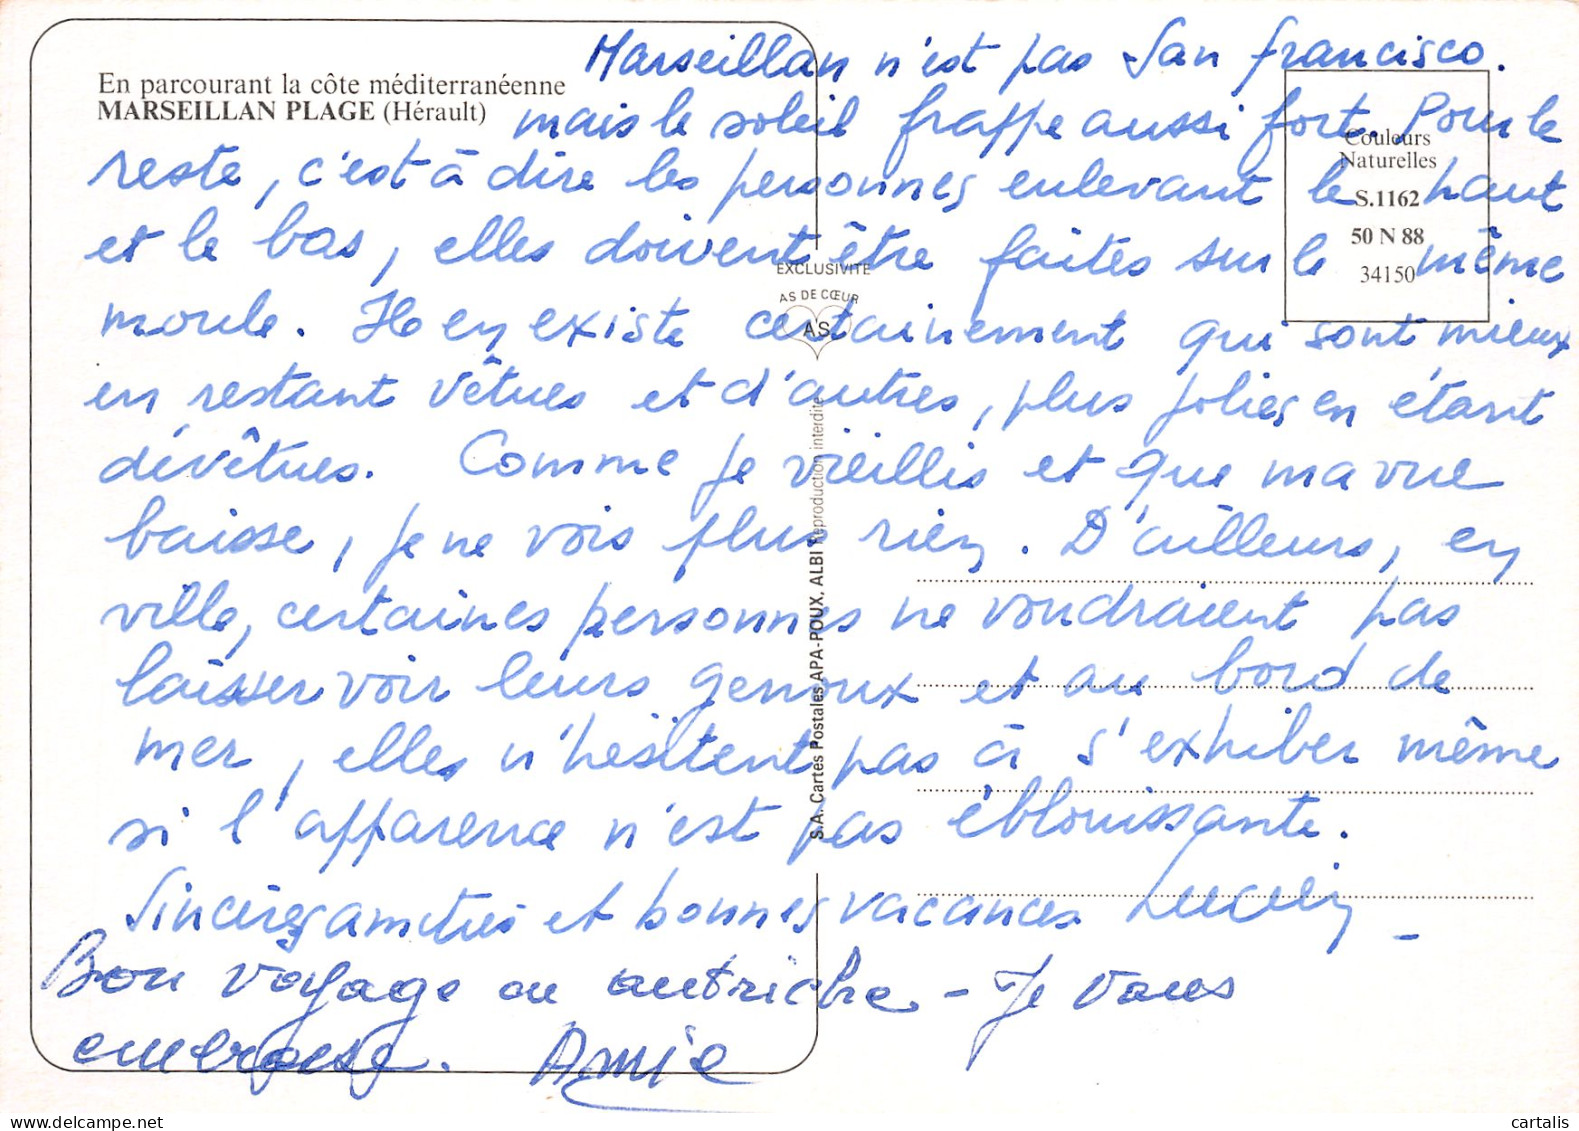 En parcourant la côte méditerranéenne
MARSEILLAN PLAGE (Hérault)
Couleurs
Naturelles
S.1162
50 N 88
34150
EXCLUSIVITE
AS DE CŒUR
AS
S.A. Cartes Postales APA-POUX, ALBI Reproduction interdite
Marseillan n'est pas San francisco.
mais le soleil frappe aussi fort. Pour le
reste, c'est à dire les personnes enlevant le haut
et le bas, elles doivent être faites sur le même
moule. Il en existe certainement qui sont mieux
en restant vêtues et d'autres, plus jolies en étant
dévêtues. Comme je vieillis et que ma vue
baisse, je ne vois plus rien. D'ailleurs, en
ville, certaines personnes ne voudraient pas
laisser voir leurs genoux et au bord de
mer, elles n'hésitent pas à s'exhiber même
si l'apparence n'est pas éblouissante.
Sincères amitiés et bonnes vacances Lucien
Bon voyage en autriche - Je vous
embrasse.
cartalis
www.delcampe.net